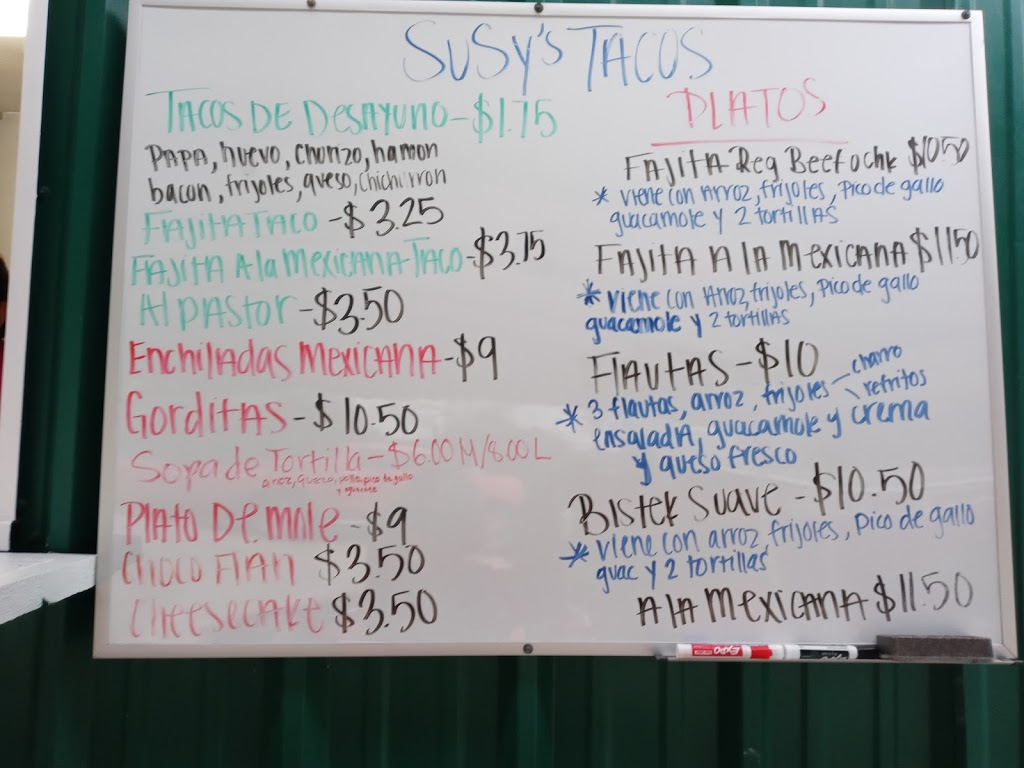 SUSY'S TACOS
TACOS DE DESAYUNO - $1.75
PAPA, huevo, chorizo, hamon
bacon, frijoles, queso, chicharron
FAJITA TACO - $3.25
FAJITA A la MEXICANA TACO - $3.75
Al PASTOR - $3.50
Enchiladas MEXICANA - $9
Gorditas - $10.50
Sopa de Tortilla - $6.00 M/8.00 L
arroz, queso, pollo, pico de gallo
y aguacate
Plato De mole - $9
Choco Flan $3.50
Cheesecake $3.50
PLATOS
FAJITA Reg Beef o chk $10.50
* viene con Arroz, frijoles, Pico de gallo
guacamole y 2 tortillas
FAJITA A la Mexicana $11.50
* viene con Arroz, frijoles, Pico de gallo
guacamole y 2 tortillas
Flautas - $10
* 3 flautas, arroz, frijoles - charro
\ refritos
ensalada, guacamole y crema
y queso fresco
Bistek Suave - $10.50
* viene con arroz, frijoles, pico de gallo
guac y 2 tortillas
A la Mexicana $11.50
EXPO